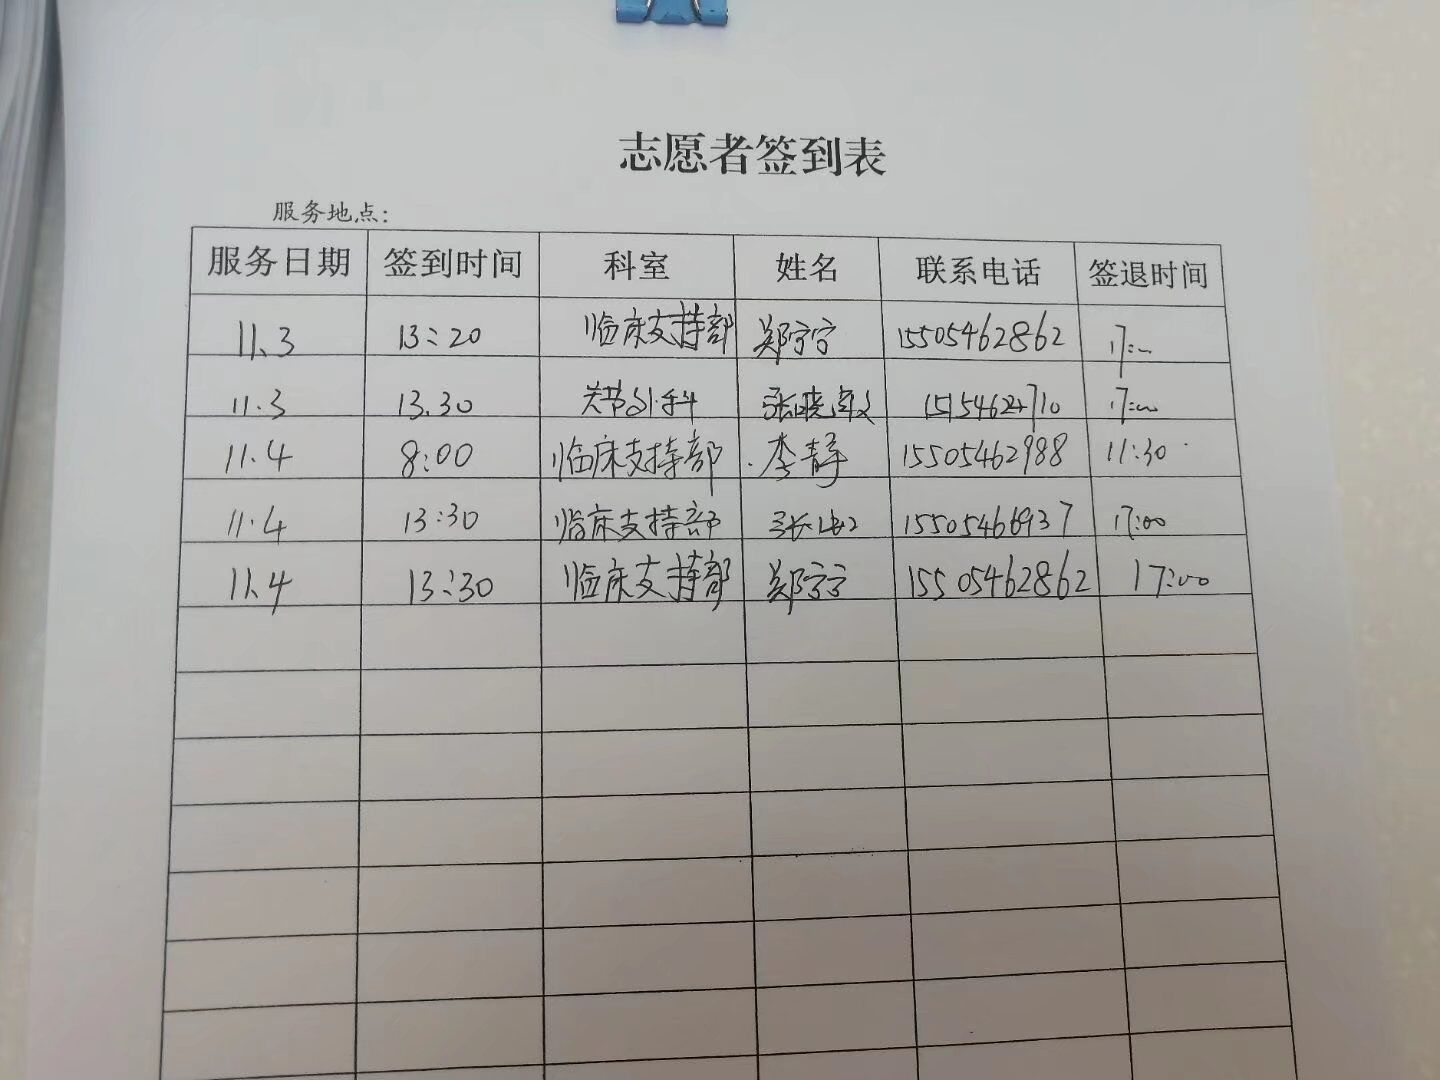 志愿者签到表
服务地点:
服务日期 签到时间 科室 姓名 联系电话 签退时间
11.3 13:20 临床支持部 郑宁宁 15505462862 17:00
11.3 13.30 关节外科 张晓敏 17:00
11.4 8:00 临床支持部 李静 15505462988 11:30
11.4 13:30 临床支持部 15505466937 17:00
11.4 13:30 临床支持部 郑宁宁 15505462862 17:00